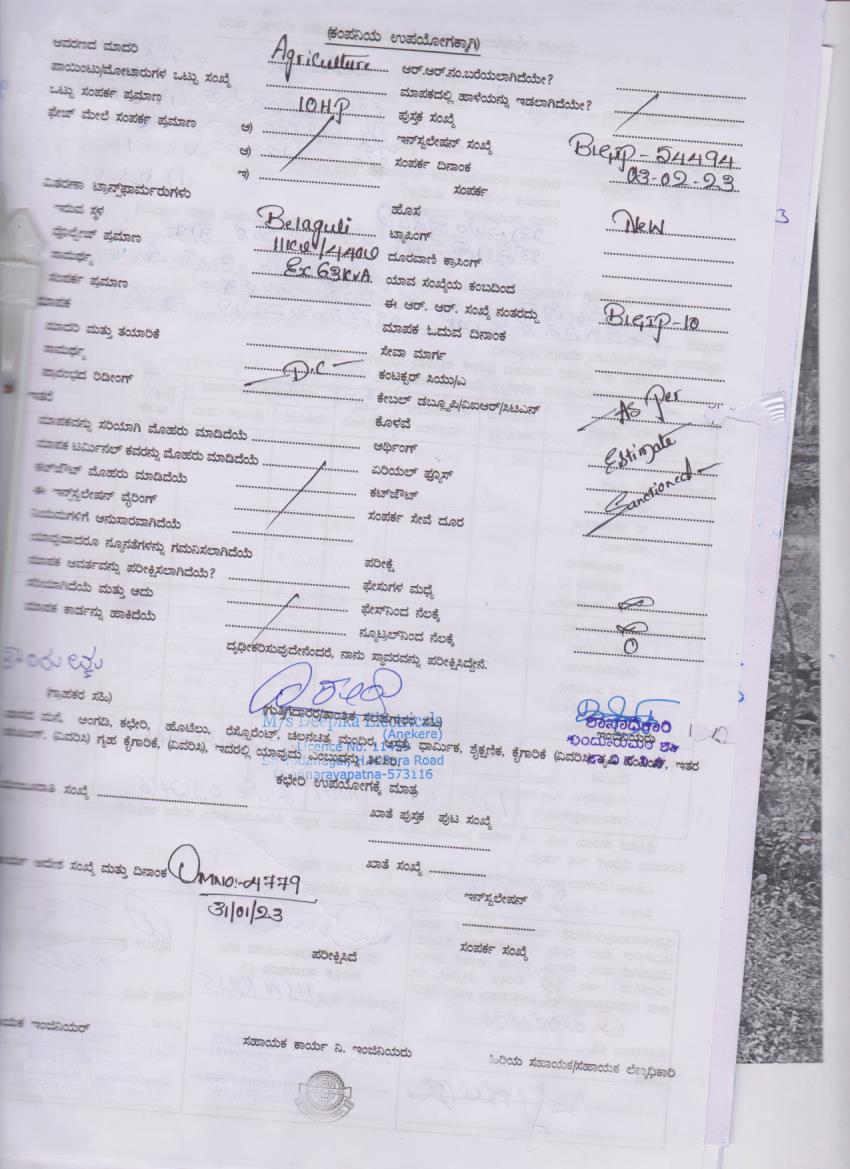 (ಕಂಪನಿಯ ಉಪಯೋಗಕ್ಕಾಗಿ)
ಆವರಣದ ಮಾದರಿ Agriculture ಆರ್.ಆರ್.ನಂ.ಬರೆಯಲಾಗಿದೆಯೇ?
ಪಾಯಿಂಟು/ಮೋಟಾರುಗಳ ಒಟ್ಟು ಸಂಖ್ಯೆ ಮಾಪಕದಲ್ಲಿ ಹಾಳೆಯನ್ನು ಇಡಲಾಗಿದೆಯೇ?
ಒಟ್ಟು ಸಂಪರ್ಕ ಪ್ರಮಾಣ 10HP ಪುಸ್ತಕ ಸಂಖ್ಯೆ
ಫೇಜ್ ಮೇಲೆ ಸಂಪರ್ಕ ಪ್ರಮಾಣ ಅ) ಇನ್‌ಸ್ಟಲೇಷನ್ ಸಂಖ್ಯೆ BLGIP-54494
ಆ) ಸಂಪರ್ಕ ದಿನಾಂಕ 03-02-23
ಇ) ಸಂಪರ್ಕ
ವಿತರಣಾ ಟ್ರಾನ್ಸ್‌ಫಾರ್ಮರುಗಳು ಹೊಸ New
ಇರುವ ಸ್ಥಳ Belaguli ಟ್ಯಾಪಿಂಗ್
ವೋಲ್ಟೇಜ್ ಪ್ರಮಾಣ 11KV/440V ದೂರವಾಣಿ ಕ್ರಾಸಿಂಗ್
ಸಾಮರ್ಥ್ಯ Ex 63KVA ಯಾವ ಸಂಖ್ಯೆಯ ಕಂಬದಿಂದ
ಸಂಪರ್ಕ ಪ್ರಮಾಣ ಈ ಆರ್. ಆರ್. ಸಂಖ್ಯೆ ನಂತರದ್ದು BLGIP-10
ಮಾಪಕ ಮಾಪಕ ಓದುವ ದಿನಾಂಕ
ಮಾದರಿ ಮತ್ತು ತಯಾರಿಕೆ ಸೇವಾ ಮಾರ್ಗ
ಸಾಮರ್ಥ್ಯ D.C ಕಂಟಕ್ಟರ್ ಸಿಯು/ಎ
ಪ್ರಾರಂಭದ ರಿಡೀಂಗ್ ಕೇಬಲ್ ಡಬ್ಲ್ಯೂಪಿ/ವಿಐಆರ್/ಸಿಟಿಎನ್ As Per
ಇತರೆ ಕೊಳವೆ
ಮಾಪಕವನ್ನು ಸರಿಯಾಗಿ ಮೊಹರು ಮಾಡಿದೆಯೆ ಅರ್ಥಿಂಗ್ Estimate
ಮಾಪಕ ಟರ್ಮಿನಲ್ ಕವರನ್ನು ಮೊಹರು ಮಾಡಿದೆಯೆ ಏರಿಯಲ್ ಫ್ಯೂಸ್
ಕಟ್‌ಔಟ್ ಮೊಹರು ಮಾಡಿದೆಯೆ ಕಟ್‌ಔಟ್ Sanctioned
ಈ ಇನ್‌ಸ್ಟಲೇಷನ್ ವೈರಿಂಗ್ ಸಂಪರ್ಕ ಸೇವೆ ದೂರ
ನಿಯಮಗಳಿಗೆ ಅನುಸಾರವಾಗಿದೆಯೆ
ಯಾವುದಾದರೂ ನ್ಯೂನತೆಗಳನ್ನು ಗಮನಿಸಲಾಗಿದೆಯೆ ಪರೀಕ್ಷೆ
ಮಾಪಕ ಆವರ್ತವನ್ನು ಪರೀಕ್ಷಿಸಲಾಗಿದೆಯೆ? ಫೇಸುಗಳ ಮಧ್ಯೆ
ಸರಿಯಾಗಿದೆಯೆ ಮತ್ತು ಅದು ಫೇಸ್‌ನಿಂದ ನೆಲಕ್ಕೆ
ಮಾಪಕ ಕಾರ್ಡನ್ನು ಹಾಕಿದೆಯೆ ನ್ಯೂಟ್ರಲ್‌ನಿಂದ ನೆಲಕ್ಕೆ 0
ದೃಢೀಕರಿಸುವುದೇನೆಂದರೆ, ನಾನು ಸ್ಥಾವರವನ್ನು ಪರೀಕ್ಷಿಸಿದ್ದೇನೆ.
(ಗ್ರಾಹಕರ ಸಹಿ)
M/s Deepika Electricals
(Anekere) ಶಾಖಾಧಿಕಾರಿ
ಇಂಜಿನಿಯರು
ಮನೆ, ಅಂಗಡಿ, ಕಛೇರಿ, ಹೊಟೇಲು, ರೆಸ್ಟೊರೆಂಟ್, ಚಲನಚಿತ್ರ ಮಂದಿರ, ಆಸ್ಪತ್ರೆ, ಧಾರ್ಮಿಕ, ಶೈಕ್ಷಣಿಕ, ಕೈಗಾರಿಕೆ (ವಿವರಿಸಿ) ಇತರ
(ವಿವರಿಸಿ) ಗೃಹ ಕೈಗಾರಿಕೆ, (ವಿವರಿಸಿ), ಇದರಲ್ಲಿ ಯಾವುದು ಎಂಬುದನ್ನು ತಿಳಿಸಿರಿ.
Licence No.
Road
Channarayapatna-573116
ಕಛೇರಿ ಉಪಯೋಗಕ್ಕೆ ಮಾತ್ರ
ಸಂಖ್ಯೆ ಖಾತೆ ಪುಸ್ತಕ ಪುಟ ಸಂಖ್ಯೆ
ಆದೇಶ ಸಂಖ್ಯೆ ಮತ್ತು ದಿನಾಂಕ OMNO:-4779 ಖಾತೆ ಸಂಖ್ಯೆ
31/01/23 ಇನ್‌ಸ್ಟಲೇಷನ್
ಪರೀಕ್ಷಿಸಿದೆ ಸಂಪರ್ಕ ಸಂಖ್ಯೆ
ಇಂಜಿನಿಯರ್ ಸಹಾಯಕ ಕಾರ್ಯ ನಿ. ಇಂಜಿನಿಯರು ಹಿರಿಯ ಸಹಾಯಕ/ಸಹಾಯಕ ಲೆಕ್ಕಾಧಿಕಾರಿ